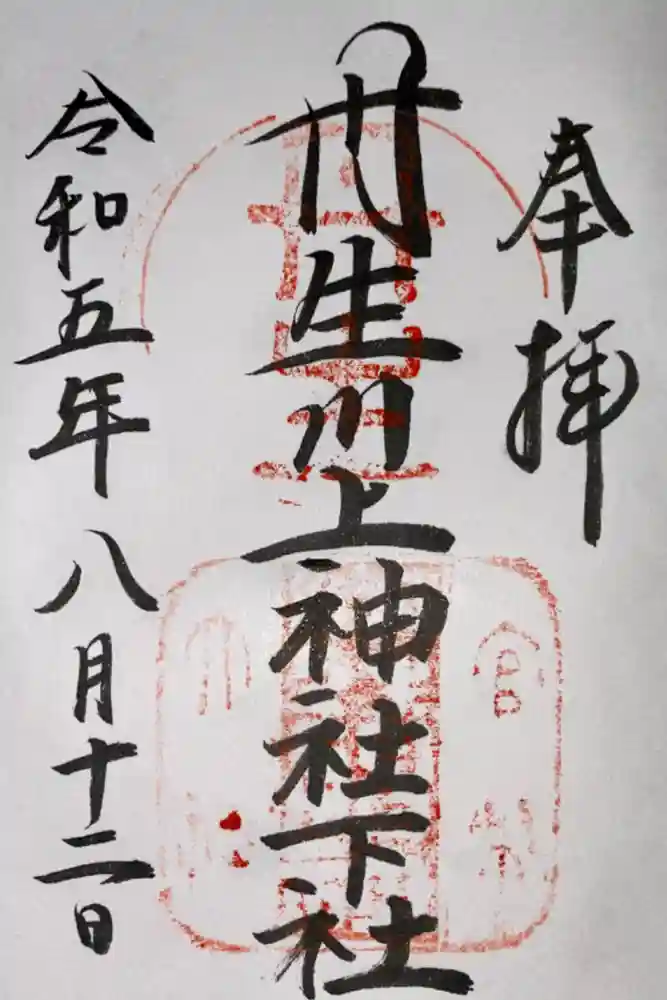 奉拝
丹生川上神社下社
令和五年八月十二日